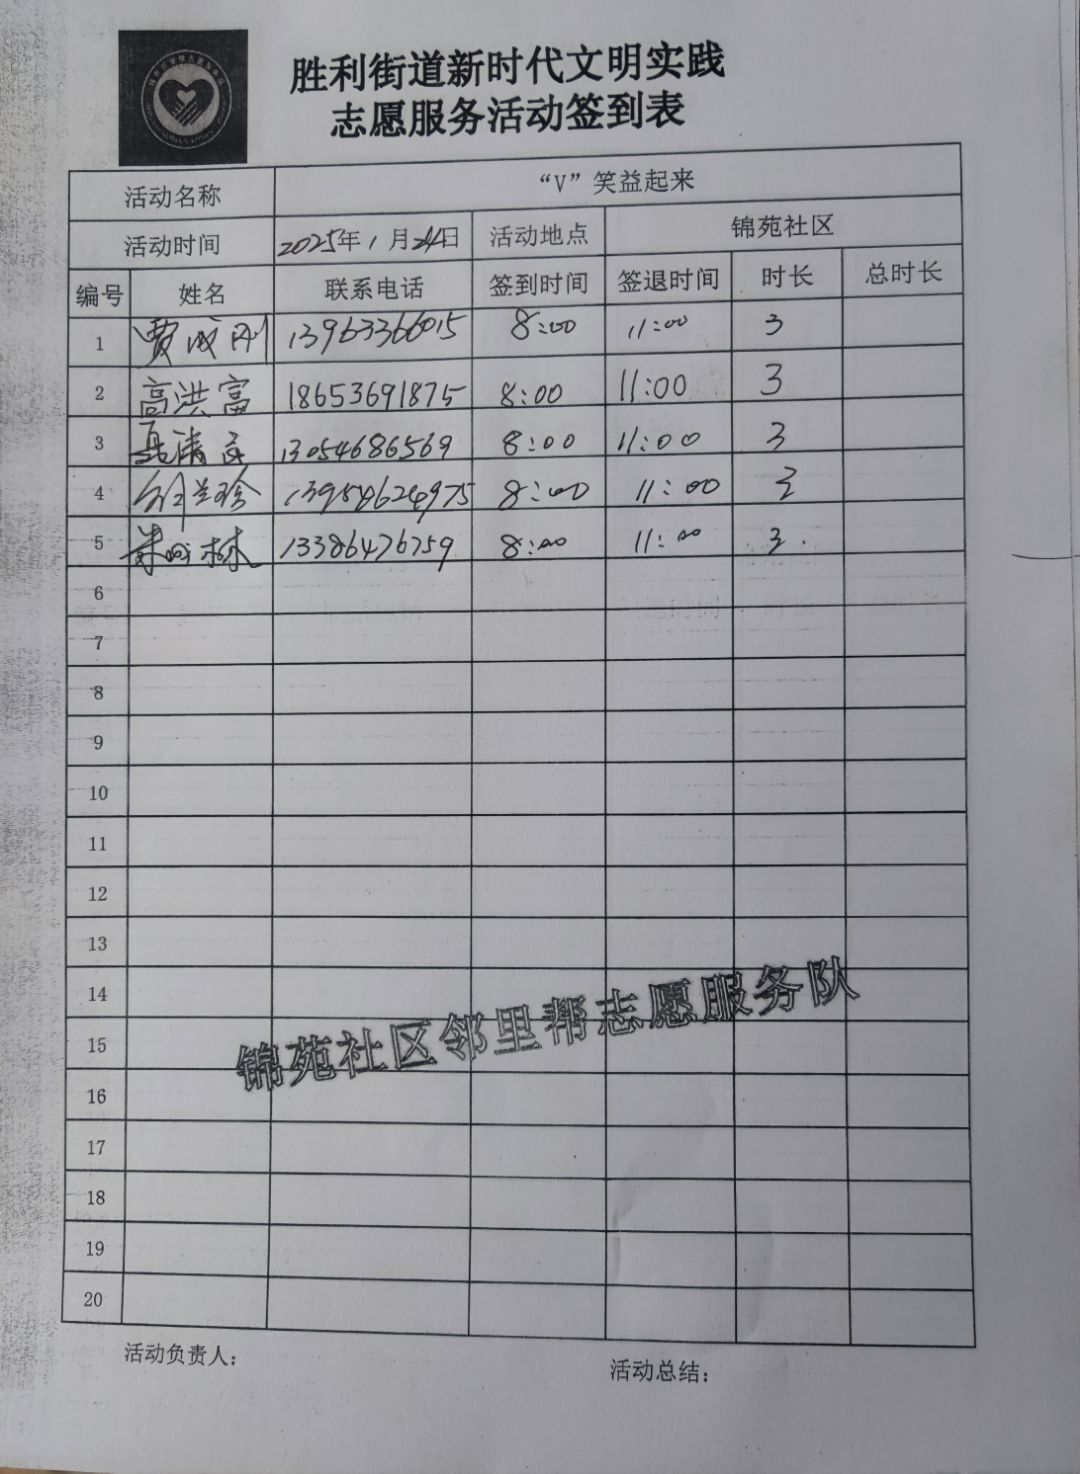 胜利街道新时代文明实践
志愿服务活动签到表
活动名称 “V”笑益起来
活动时间 2025年1月24日 活动地点 锦苑社区
编号 姓名 联系电话 签到时间 签退时间 时长 总时长
1 贾成刚 13963366015 8:00 11:00 3
2 高洪富 18653691875 8:00 11:00 3
3 聂清 13054686569 8:00 11:00 3
4 兰珍 13954624975 8:00 11:00 3
5 林 13386476759 8:00 11:00 3
6
7
8
9
10
11
12
13
14
15
16
17
18
19
20
锦苑社区邻里帮志愿服务队
活动负责人：
活动总结：